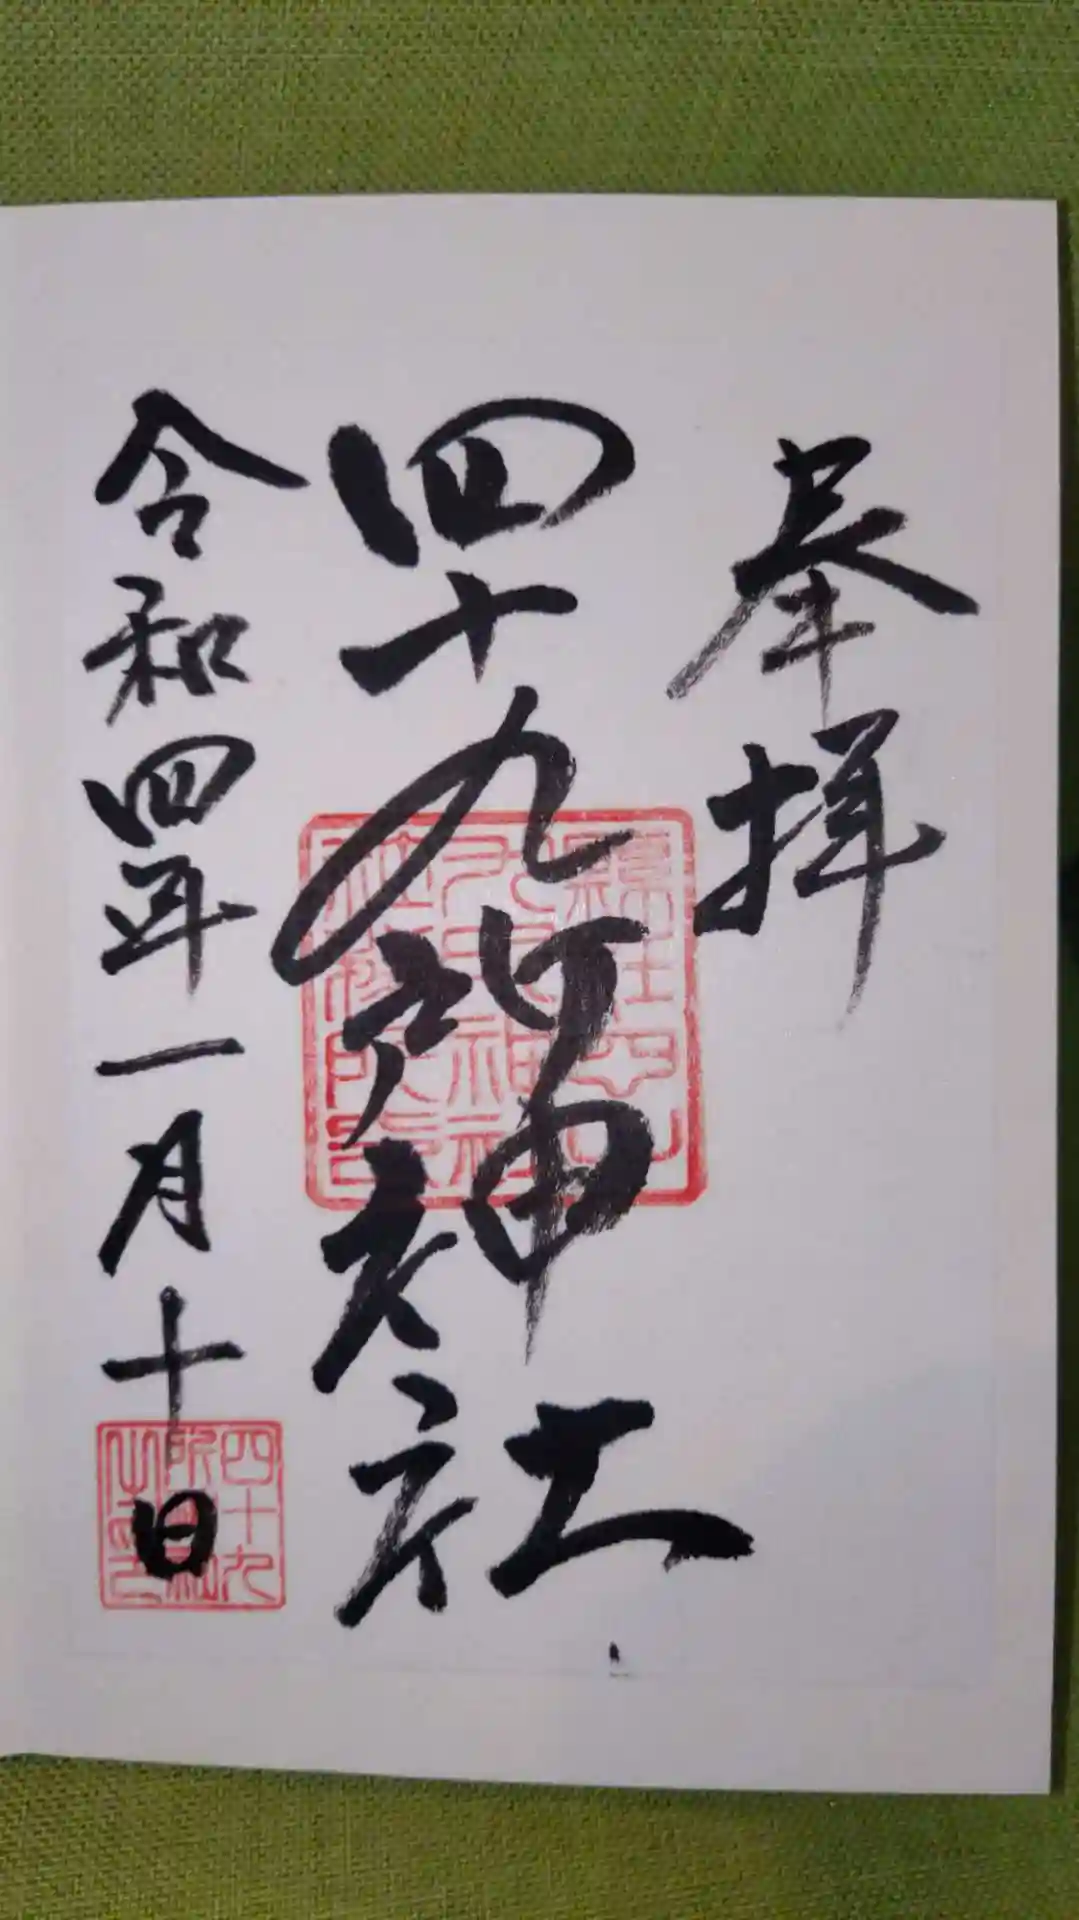 奉拝
四十九所神社
令和四年一月十日
四十九
所神社
之印